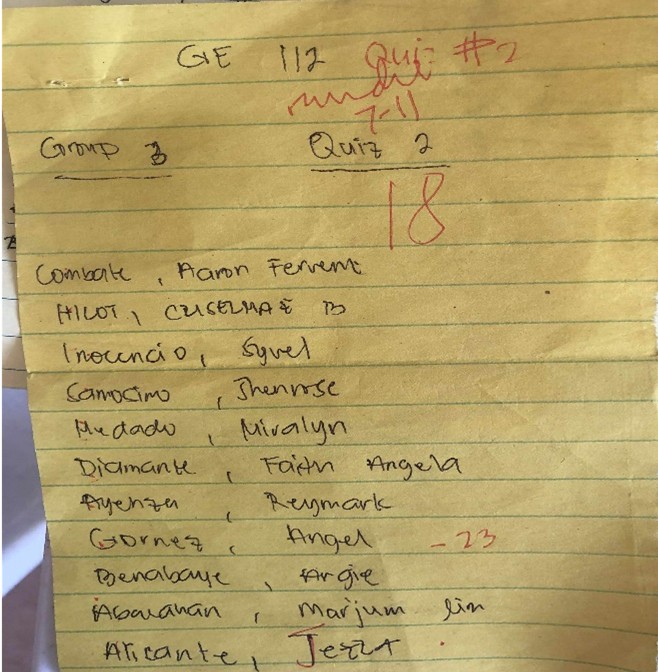 GE 112 Quiz #2
7-11
Group 3 Quiz 2
18
Combate, Aaron Fervent
HILOT, CUSELMAE B
Inocencio, Syvel
Camocimo, Jhenrose
Medado, Miralyn
Diamante, Faith Angela
Ayenza, Reymark
Gornez, Angel -23
Benabaye, Argie
Abarahan, Marjum lin
Alicante, Jezza